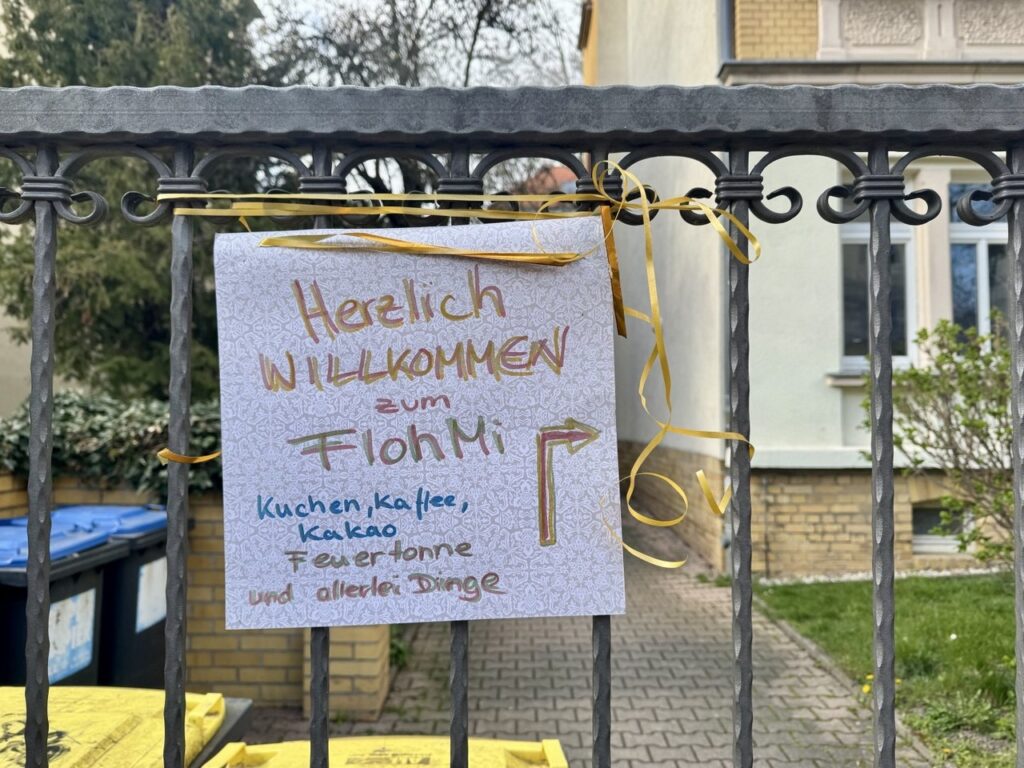 Herzlich
WILLKOMMEN
zum
FlohMi
Kuchen, Kaffee,
Kakao
Feuertonne
und allerlei Dinge